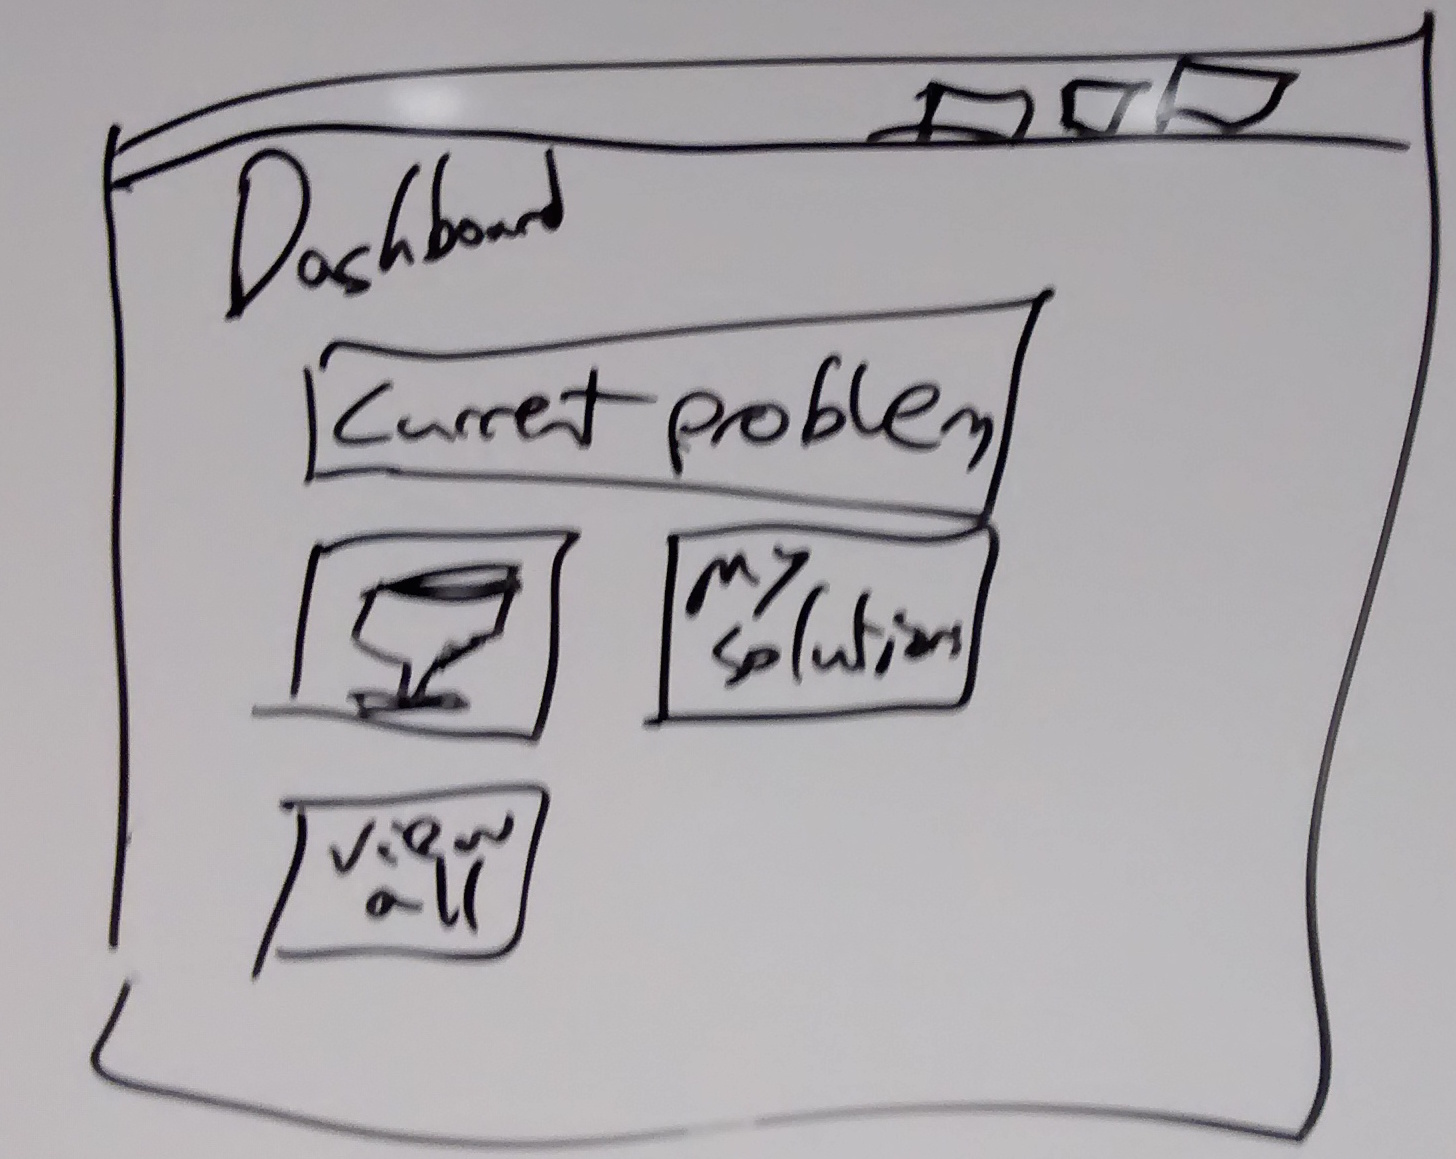 Dashboard
Current problem
my
solutions
view
all